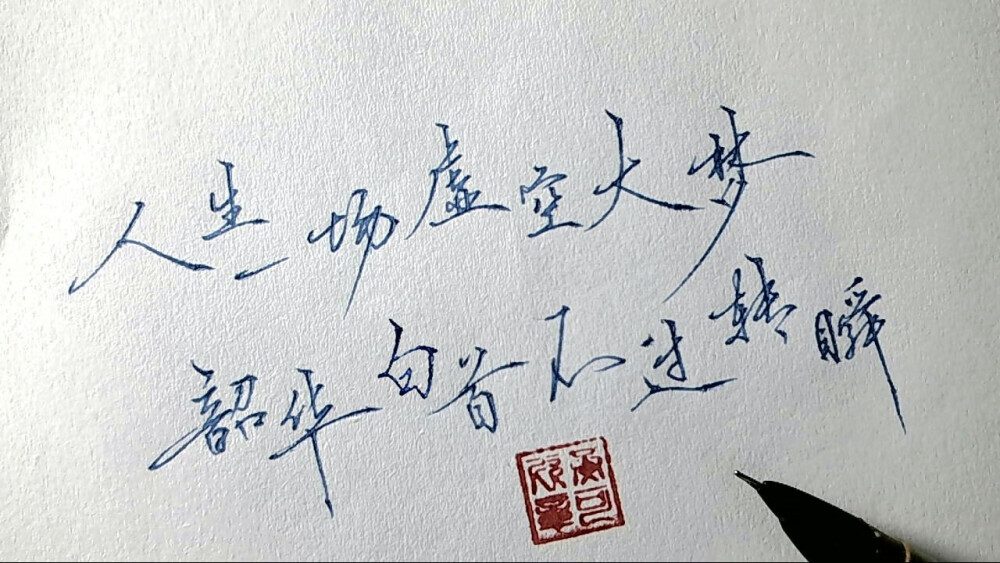 人生一场虚空大梦
韶华白首不过转瞬